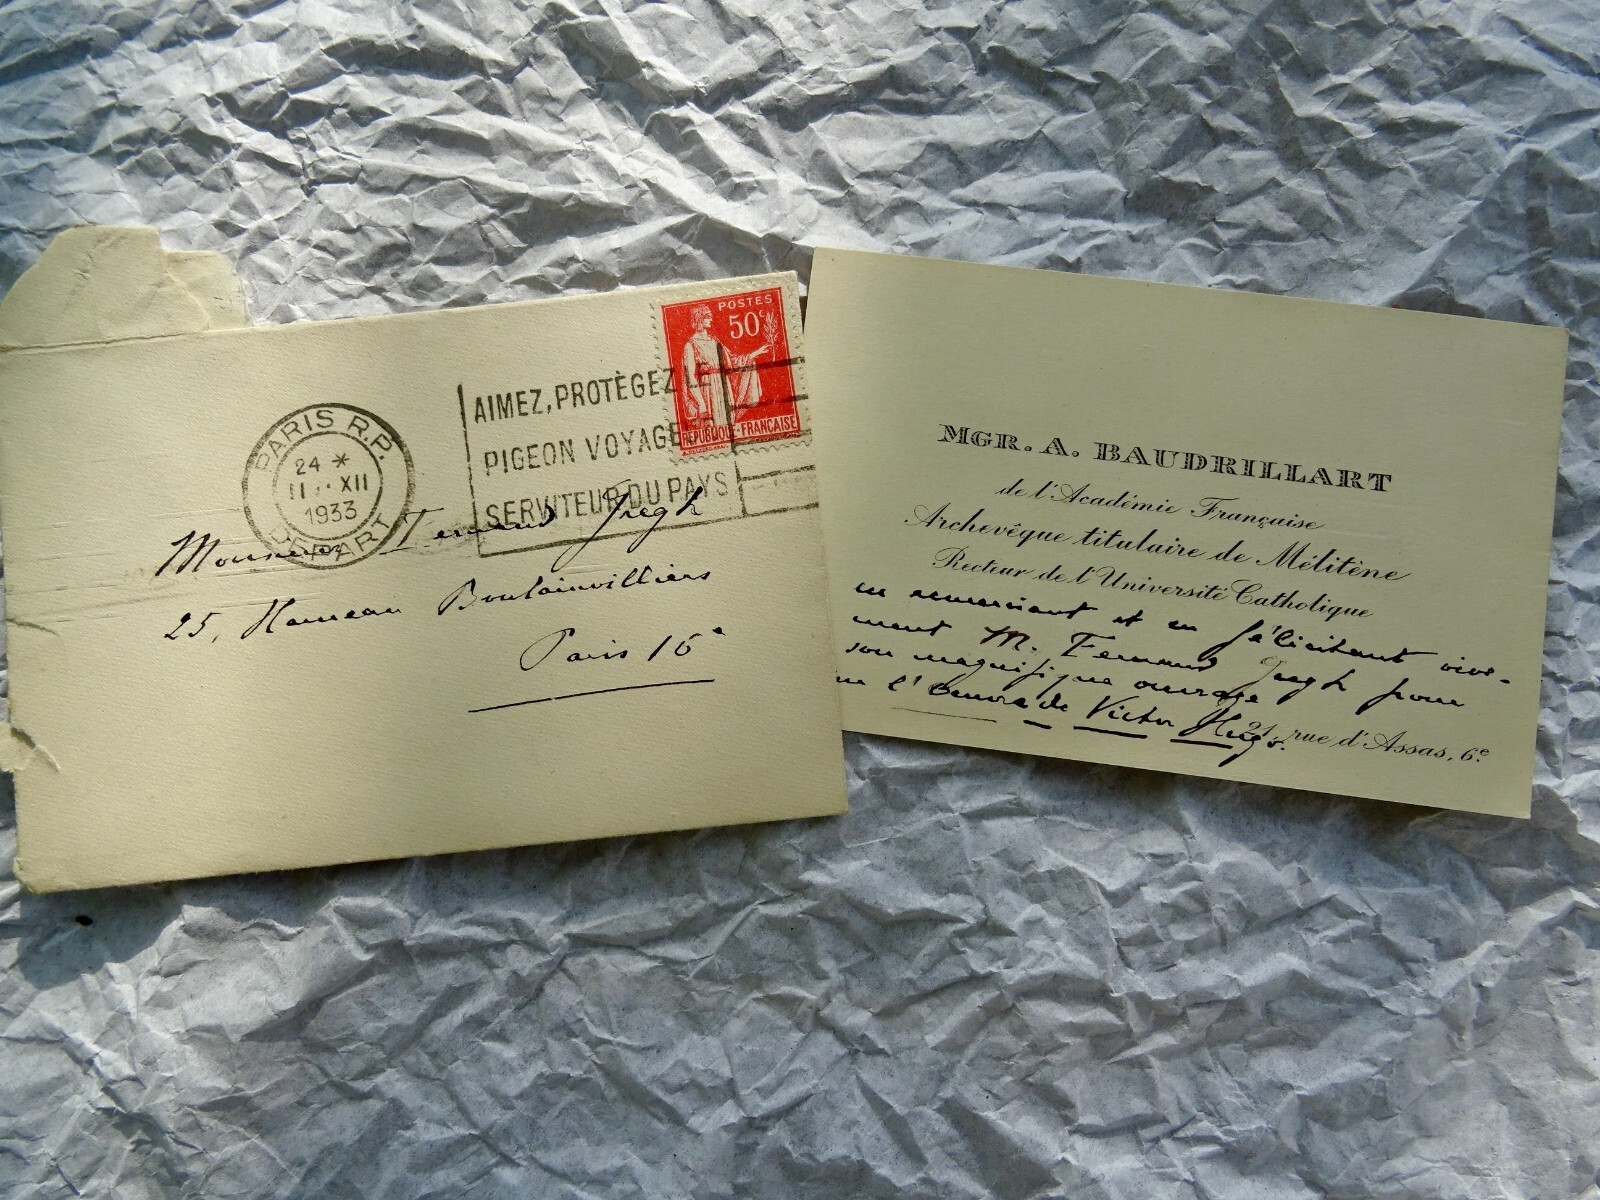 PARIS R.P.
24 *
11 XII
1933
DEPART
AIMEZ, PROTÈGEZ LE
PIGEON VOYAGEUR
SERVITEUR DU PAYS
POSTES
50c
RÉPUBLIQUE-FRANÇAISE
Monsieur Fernand Gregh
25, Hameau Boulainvilliers
Paris 16e
MGR. A. BAUDRILLART
de l'Académie Française
Archevêque titulaire de Mélitène
Recteur de l'Université Catholique
en remerciant et en félicitant vive-
ment M. Fernand Gregh pour
son magnifique ouvrage
l'Oeuvre de Victor Hugo.
21, rue d'Assas, 6e